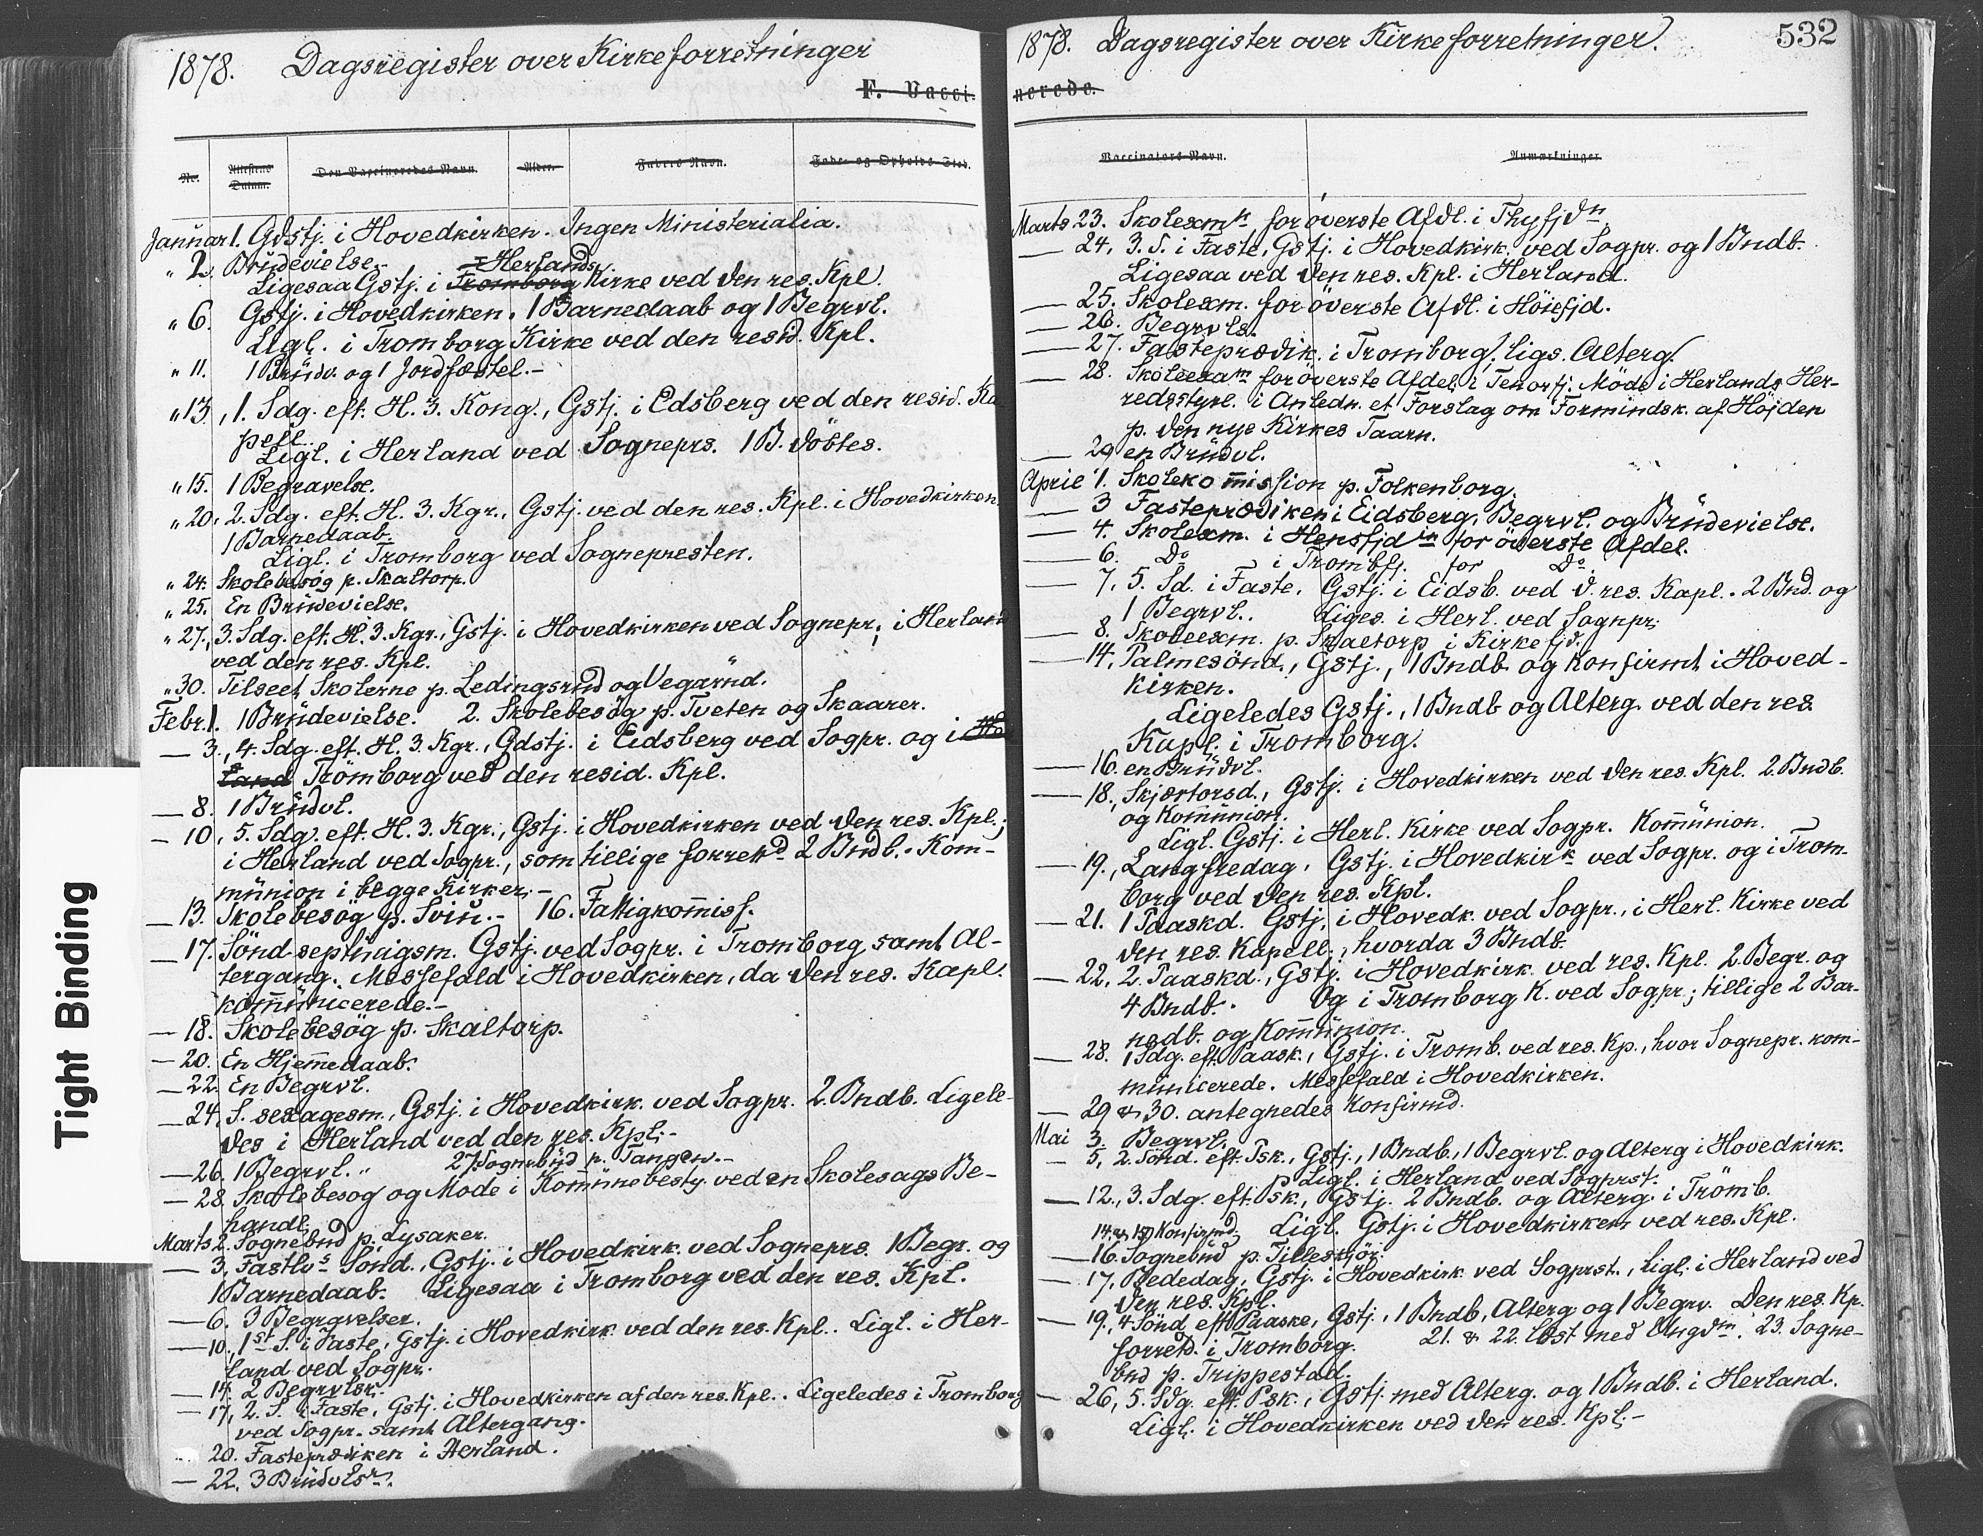 Tight Binding
1878. Dagsregister over Kirkeforretninger
F. Vacci-
No.
Attestens Datum.
Den Vaccineredes Navn.
Alder.
Faders Navn.
Føde- og Opholds-Sted.
Januar 1. Gdstj. i Hovedkirken. Ingen Ministerialia.
" 2. Brüdevielse.-
Ligesaa Gstj. i Tromborg Herlands Kirke ved den res. Kpl.
" 6. Gstj. i Hovedkirken. 1 Barnedaab og 1 Begrvl.
Ligl. i Tromborg Kirke ved den resid. Kpl.
" 11. 1 Brüdv. og 1 Jordfæstel.-
" 13, 1. Sdg. eft. H. 3. Kong., Gstj. i Edsberg ved den resid. Ka
pell.
Ligl. i Herland ved Sogneprs. 1 B. döbtes.
" 15. 1 Begravelse.
" 20, 2. Sdg. eft. H. 3. Kgr., Gstj. ved den res. Kpl. i Hovedkirken.
1 Barnedaab.
Ligl. i Tromborg ved Sognepresten.
" 24. Skolebesög p. Skaltorp.
" 25. En Brüdevielse.
" 27, 3. Sdg. eft. H. 3. Kgr., Gstj. i Hovedkirken ved Sognepr., i Herland
ved den res. Kpl.
" 30. Tilseet Skolerne p. Ledingsrud og Vegarüd.
Febr. 1. 1 Brüdevielse. 2. Skolebesög p. Tveten og Skaarer.
— 3., 4. Sdg. eft. H. 3. Kgr., Gdstj. i Eidsberg ved Sogpr. og i Her
land Trömborg ved den resid. Kpl.
— 8. 1 Brüdvl.
— 10, 5. Sdg. eft. H. 3. Kgr., Gstj. i Hovedkirken ved den res. Kpl.;
i Herland ved Sogpr., som tillige forretd 2 Bndb. Kom-
münion i begge Kirker.-
— 13. Skolebesög p. Sviu.- 16. Fattigkom̄iss.
— 17. Sönd. septuagsm. Gstj. ved Sogpr. i Tromborg, samt Al-
tergang. Messefald i Hovedkirken, da den res. Kapl.
kom̄ünicerede.-
— 18. Skolebesög p. Skaltorp.
— 20. En Hjem̄edaab.
— 22. En Begrvl.
— 24, S. sexagesm., Gstj. i Hovedkirk. ved Sogpr. 2. Bndb. Ligele-
des i Herland ved den res. Kpl.-
— 26. 1 Begrvl. " 27. Sognebüd p. Tangen.-
— 28. Skolebesog og Mode i Kom̄ünebesty. ved en Skolesags Be-
handl.
Marts 2. Sognebud p. Lysaker.
— 3. Fastlvs Sönd., Gstj. i Hovedkirk. ved Sogneprs. 1 Begr. og
1 Barnedaab. Ligesaa i Tromborg ved den res. Kpl.
— 6. 3 Begravelser.
— 10, 1st S. i Faste, Gstj. i Hovedkirk ved den res. Kpl.. Ligl. i Her-
land ved Sogpr.
— 14. 2 Begrvlsr.
— 17, 2. S. i Faste, Gstj. i Hovedkirken af den res. Kpl.. Ligeledes i Tromborg
ved Sogpr. samt Altergang.
20. Fasteprædiken i Herland.
— 22. 3 Brüdvlsr.
1878. Dagsregister over Kirkeforretninger.
532
nerede.
Vaccinators Navn.
Anmærkninger.
Marts 23. Skolexmn for överste Afdl. i Thyfjdn
— 24, 3. S. i Faste, Gstj. i Hovedkirk. ved Sogpr. og 1 Bndb.
Ligesaa ved den res. Kpl. i Herland.
— 25. Skolexm. for överste Afdl. i Höiefjd.
— 26. Begrvls.
— 27. Fasteprædik. i Tromborg, ligs. Alterg.
— 28. Skoleexam for överste Afdel. i Tenorfj. Möde i Herlands Her-
redsstyrl. i Anledn. et Forslag om Formindsk. af Höjden
p. den nye Kirkes Taarn.
— 29 en Brüdvl.
April 1. Skolekom̄ission p. Folkenborg.
— 3 Fasteprædiken i Eidsberg, Begrvl. og Brüdevielse.
— 4. Skolexm. i Hensfjdin for överste Afdel.
— 6. Do i Trombfj. for Do.
— 7, 5. Sd. i Faste, Gstj. i Eidsb. ved d. res. Kapl. 2 Bnd. og
1 Begrvl.. Liges. i Herl. ved Sognpr.
— 8. Skoleexm. p. Skaltorp i Kirkefjd.
— 14, Palmesönd., Gstj., 1 Bndb og Konfirmt. i Hoved-
kirken.
Ligeledes Gstj., 1 Bndb og Alterg. ved den res
Kapl. i Tromborg.
— 16. en Brüdvl.
— 18., Skjærtorsd., Gstj. i Hovedkirken ved den res. Kpl. 2. Bndb.
og Kom̄ünion.
Ligl. Gstj. i Herl. Kirke ved Sogpr. Kom̄ünion.
— 19., Langfredag, Gstj. i Hovedkirk ved Sogpr. og i Trom-
borg ved den res. Kpl.
— 21. 1 Paaskd. Gstj. i Hovedk. ved Sogpr., i Herl. Kirke ved
den res. Kapell., hvorda 3 Bndb.
— 22, 2. Paaskd., Gstj. i Hovedkirk. ved res. Kpl. 2. Begr. og
4 Bndb. Og i Tromborg K. ved Sogpr.; tillige 2 Bar-
nedb. og Kom̄ünion.
— 28. 1 Sdg. eft. Paask., Gstj. i Tromb. ved res. Kp., hvor Sognepr. kom-
münicerede. Messefald i Hovedkirken.
— 29 & 30. antegnedes Konfirmd.
Mai 3. Begrvl.
— 5, 2. Sönd. eft. Psk., Gstj., 1 Bndb., 1 Begrvl. og Alterg i Hovedkirk.
Ligl. i Herland ved Sogprst.
— 12., 3. Sdg. eft. Psk, Gstj. 2 Bndb. og Alterg. i Trömb.
Ligl. Gstj. i Hovedkirken ved res. Kpl.
14. & 15 Konfirmd.
— 16. Sognebud p. Tillestjör.
— 17, Bededag, Gstj. i Hovedkirk ved Sogprst., Ligl. i Herland ved
den res. Kpl.
— 19., 4 Sönd eft Paaske, Gstj., 1 Bndb, Alterg og 1 Begrv. Den res. Kp.
forretd. i Tromborg. 21. & 22. læst med Ungdm. 23. Sogne-
bud p. Trippestad.
— 26, 5. Sdg. eft. Psk., Gstj. med Alterg. og 1 Bndb. i Herland.
Ligl. i Hovedkirken ved den res. Kpl.-